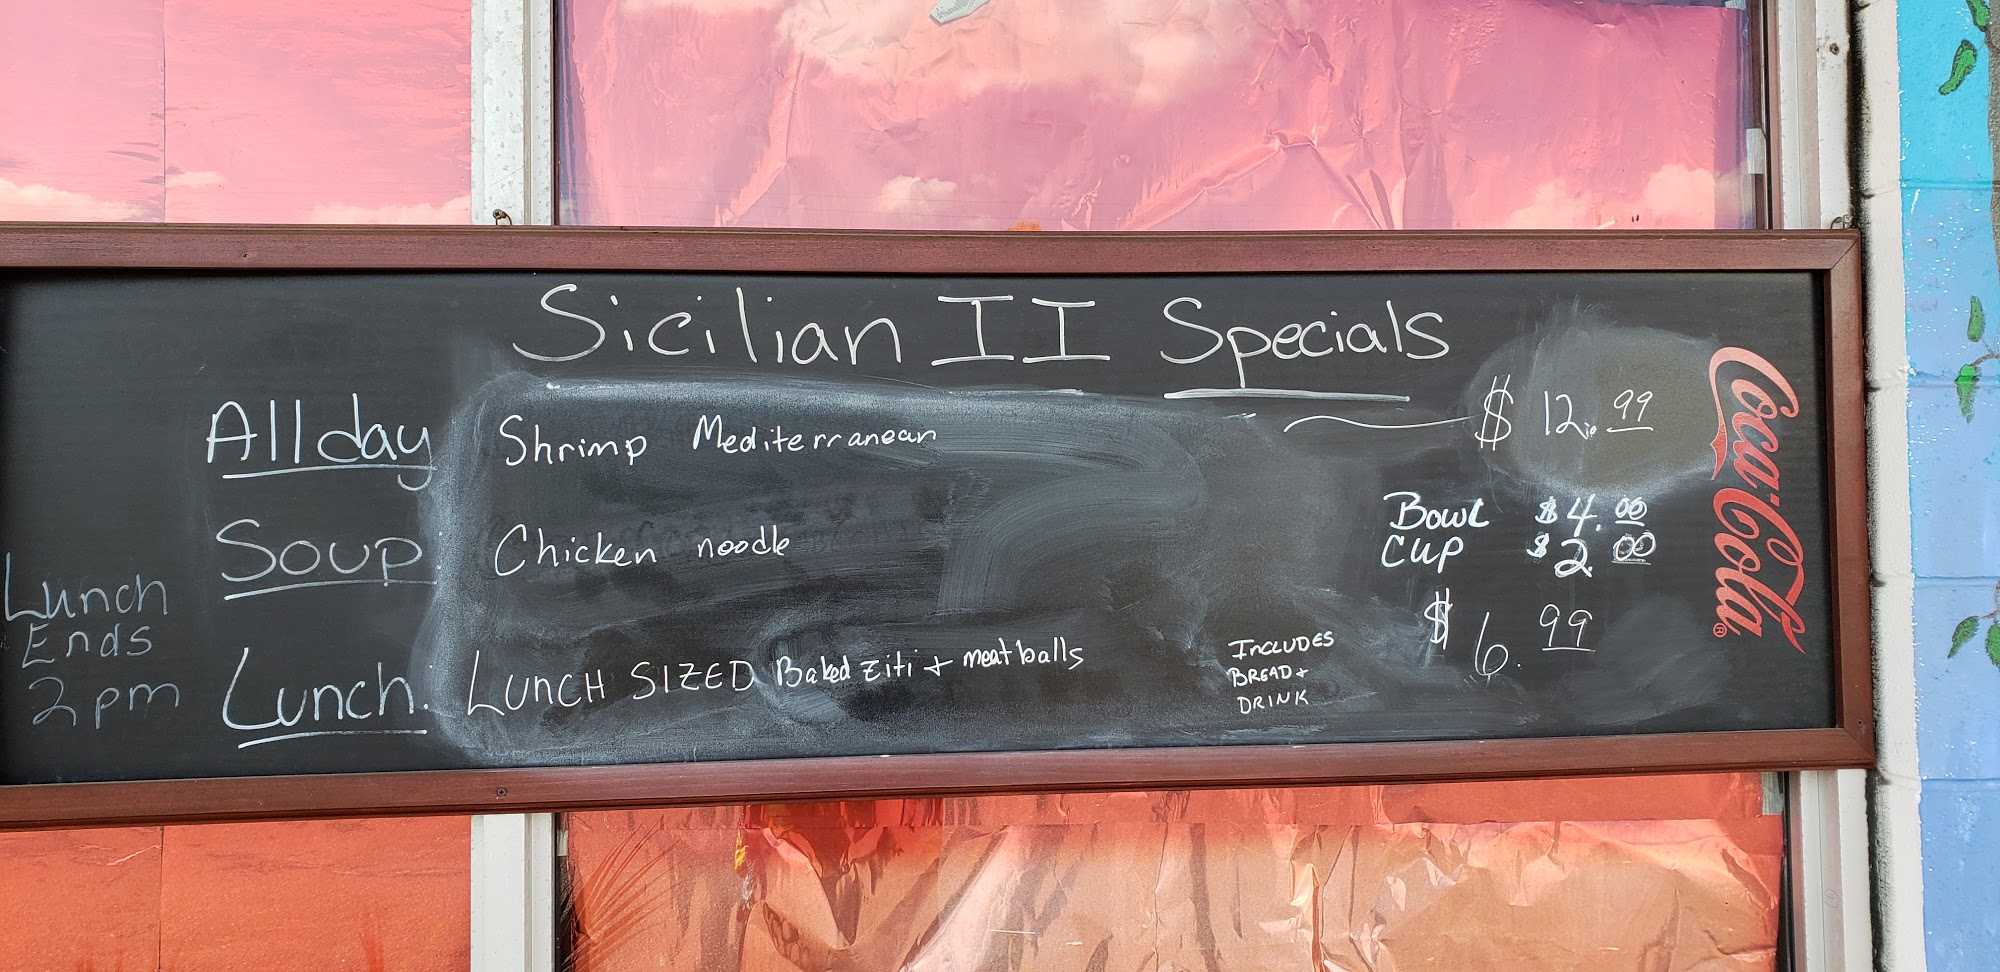 Sicilian II Specials
All day: Shrimp Mediterranean $12.99
Soup: Chicken noodle
Bowl $4.00
Cup $2.00
Lunch: LUNCH SIZED Baked ziti + meatballs
INCLUDES
BREAD +
DRINK
$6.99
Lunch
Ends
2pm
Coca-Cola®